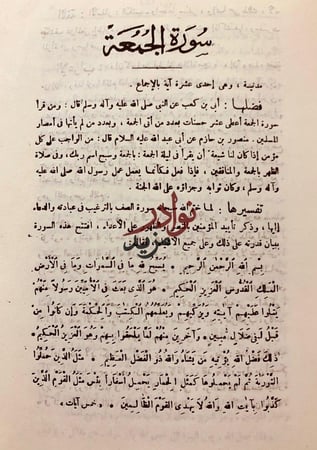 سورة الجمعة
مدنية ، وهى إحدى عشرة آية بالإجماع .
فضلها : أبى بن كعب عن النبى صلى الله عليه وآله وسلم قال : ومن قرأ
سورة الجمعة أعطى عشر حسنات بعدد من أتى الجمعات ، وبعدد من لم يأتها فى أمصار
المسلمين . منصور بن حازم عن أبى عبد الله عليه السلام قال : من الواجب على كل
مؤمن إذا كان لنا شيعة أن يقرأ فى ليلة الجمعة : بالجمعة وسبح اسم ربك ، وفى صلاة
الظهر بالجمعة والمنافقين ، فإذا فعل فكأنما يعمل عمل رسول الله صلى الله عليه
وآله وسلم ، وكان ثوابه وجزاؤه على الله الجنة .
تفسيرها : لما ختم الله سورة الصف بالترغيب فى عبادته والدعاء
إليها ، وذكر تأييد المؤمنين على الأعداء ، افتتح هذه السورة
ببيان قدرته على ذلك وعلى جميع الأشياء
نوادر
بسم الله الرحمن الرحيم . يسبح لله ما فى السموات وما فى الأرض
الملك القدوس العزيز الحكيم * هو الذى بعث فى الأميين رسولا منهم
يتلوا عليهم آيته ويزكيهم ويعلمهم الكتب والحكمة وإن كانوا من
قبل لفى ضلل مبين * وآخرين منهم لما يلحقوا بهم وهو العزيز الحكيم *
ذلك فضل الله يؤتيه من يشاء والله ذو الفضل العظيم * مثل الذين حملوا
التورية ثم لم يحملوها كمثل الحمار يحمل أسفارا بئس مثل القوم الذين
كذبوا بآيت الله والله لا يهدى القوم الظلمين * خمس آيات *